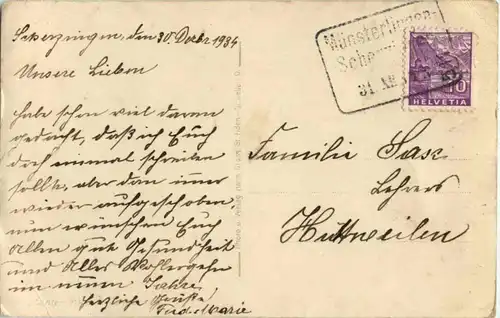 Scherzingen, den 30. Dezbr. 1934
Unsere Lieben
habe schon viel daran
gedacht, daß ich Euch
doch einmal schreiben
sollte, aber dan imer
wieder aufgeschoben,
nun wünschen Euch
Allen gute Gesundheit
und Alles Wohlergehn
im neuen Jahre,
herzliche Grüße,
Münsterlingen-
Scher
31. XII.
10
HELVETIA
Familie Sax
Lehrers
Hüttweilen